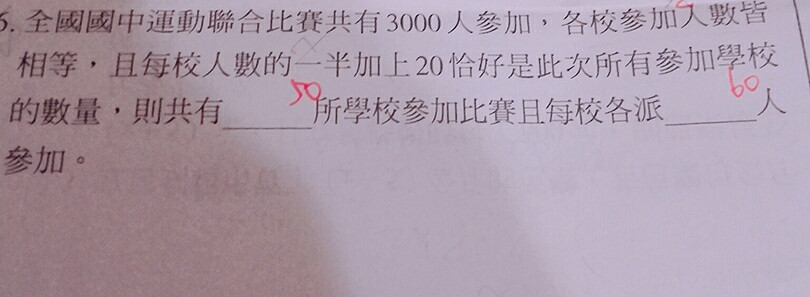 5. 全國國中運動聯合比賽共有3000人參加，各校參加人數皆
相等，且每校人數的一半加上20恰好是此次所有參加學校
的數量，則共有50所學校參加比賽且每校各派60人
參加。